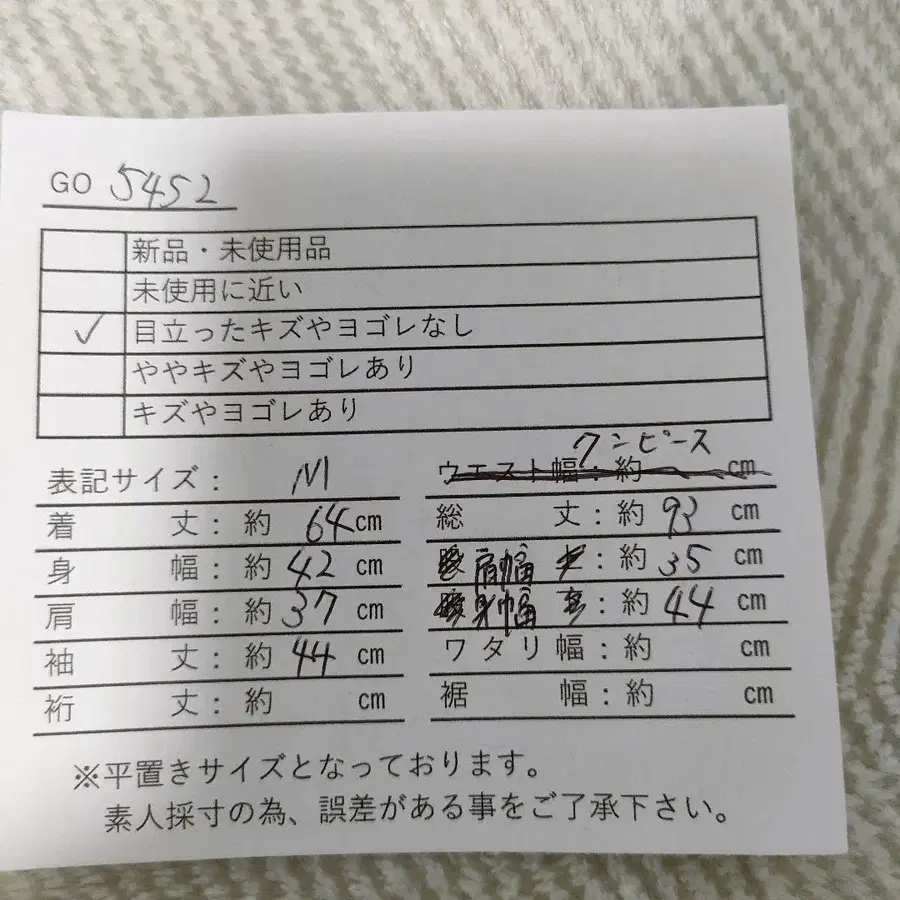 GO 5452
新品・未使用品
未使用に近い
✓ 目立ったキズやヨゴレなし
ややキズやヨゴレあり
キズやヨゴレあり
表記サイズ: M
着丈:約 64cm
身幅:約 42cm
肩幅:約 37cm
袖丈:約 44cm
裄丈:約 cm
ワンピース
ウエスト幅:約 cm
総丈:約 93cm
肩幅:約 35cm
身幅:約 44cm
ワタリ幅:約 cm
裾幅:約 cm
※平置きサイズとなっております。
素人採寸の為、誤差がある事をご了承下さい。